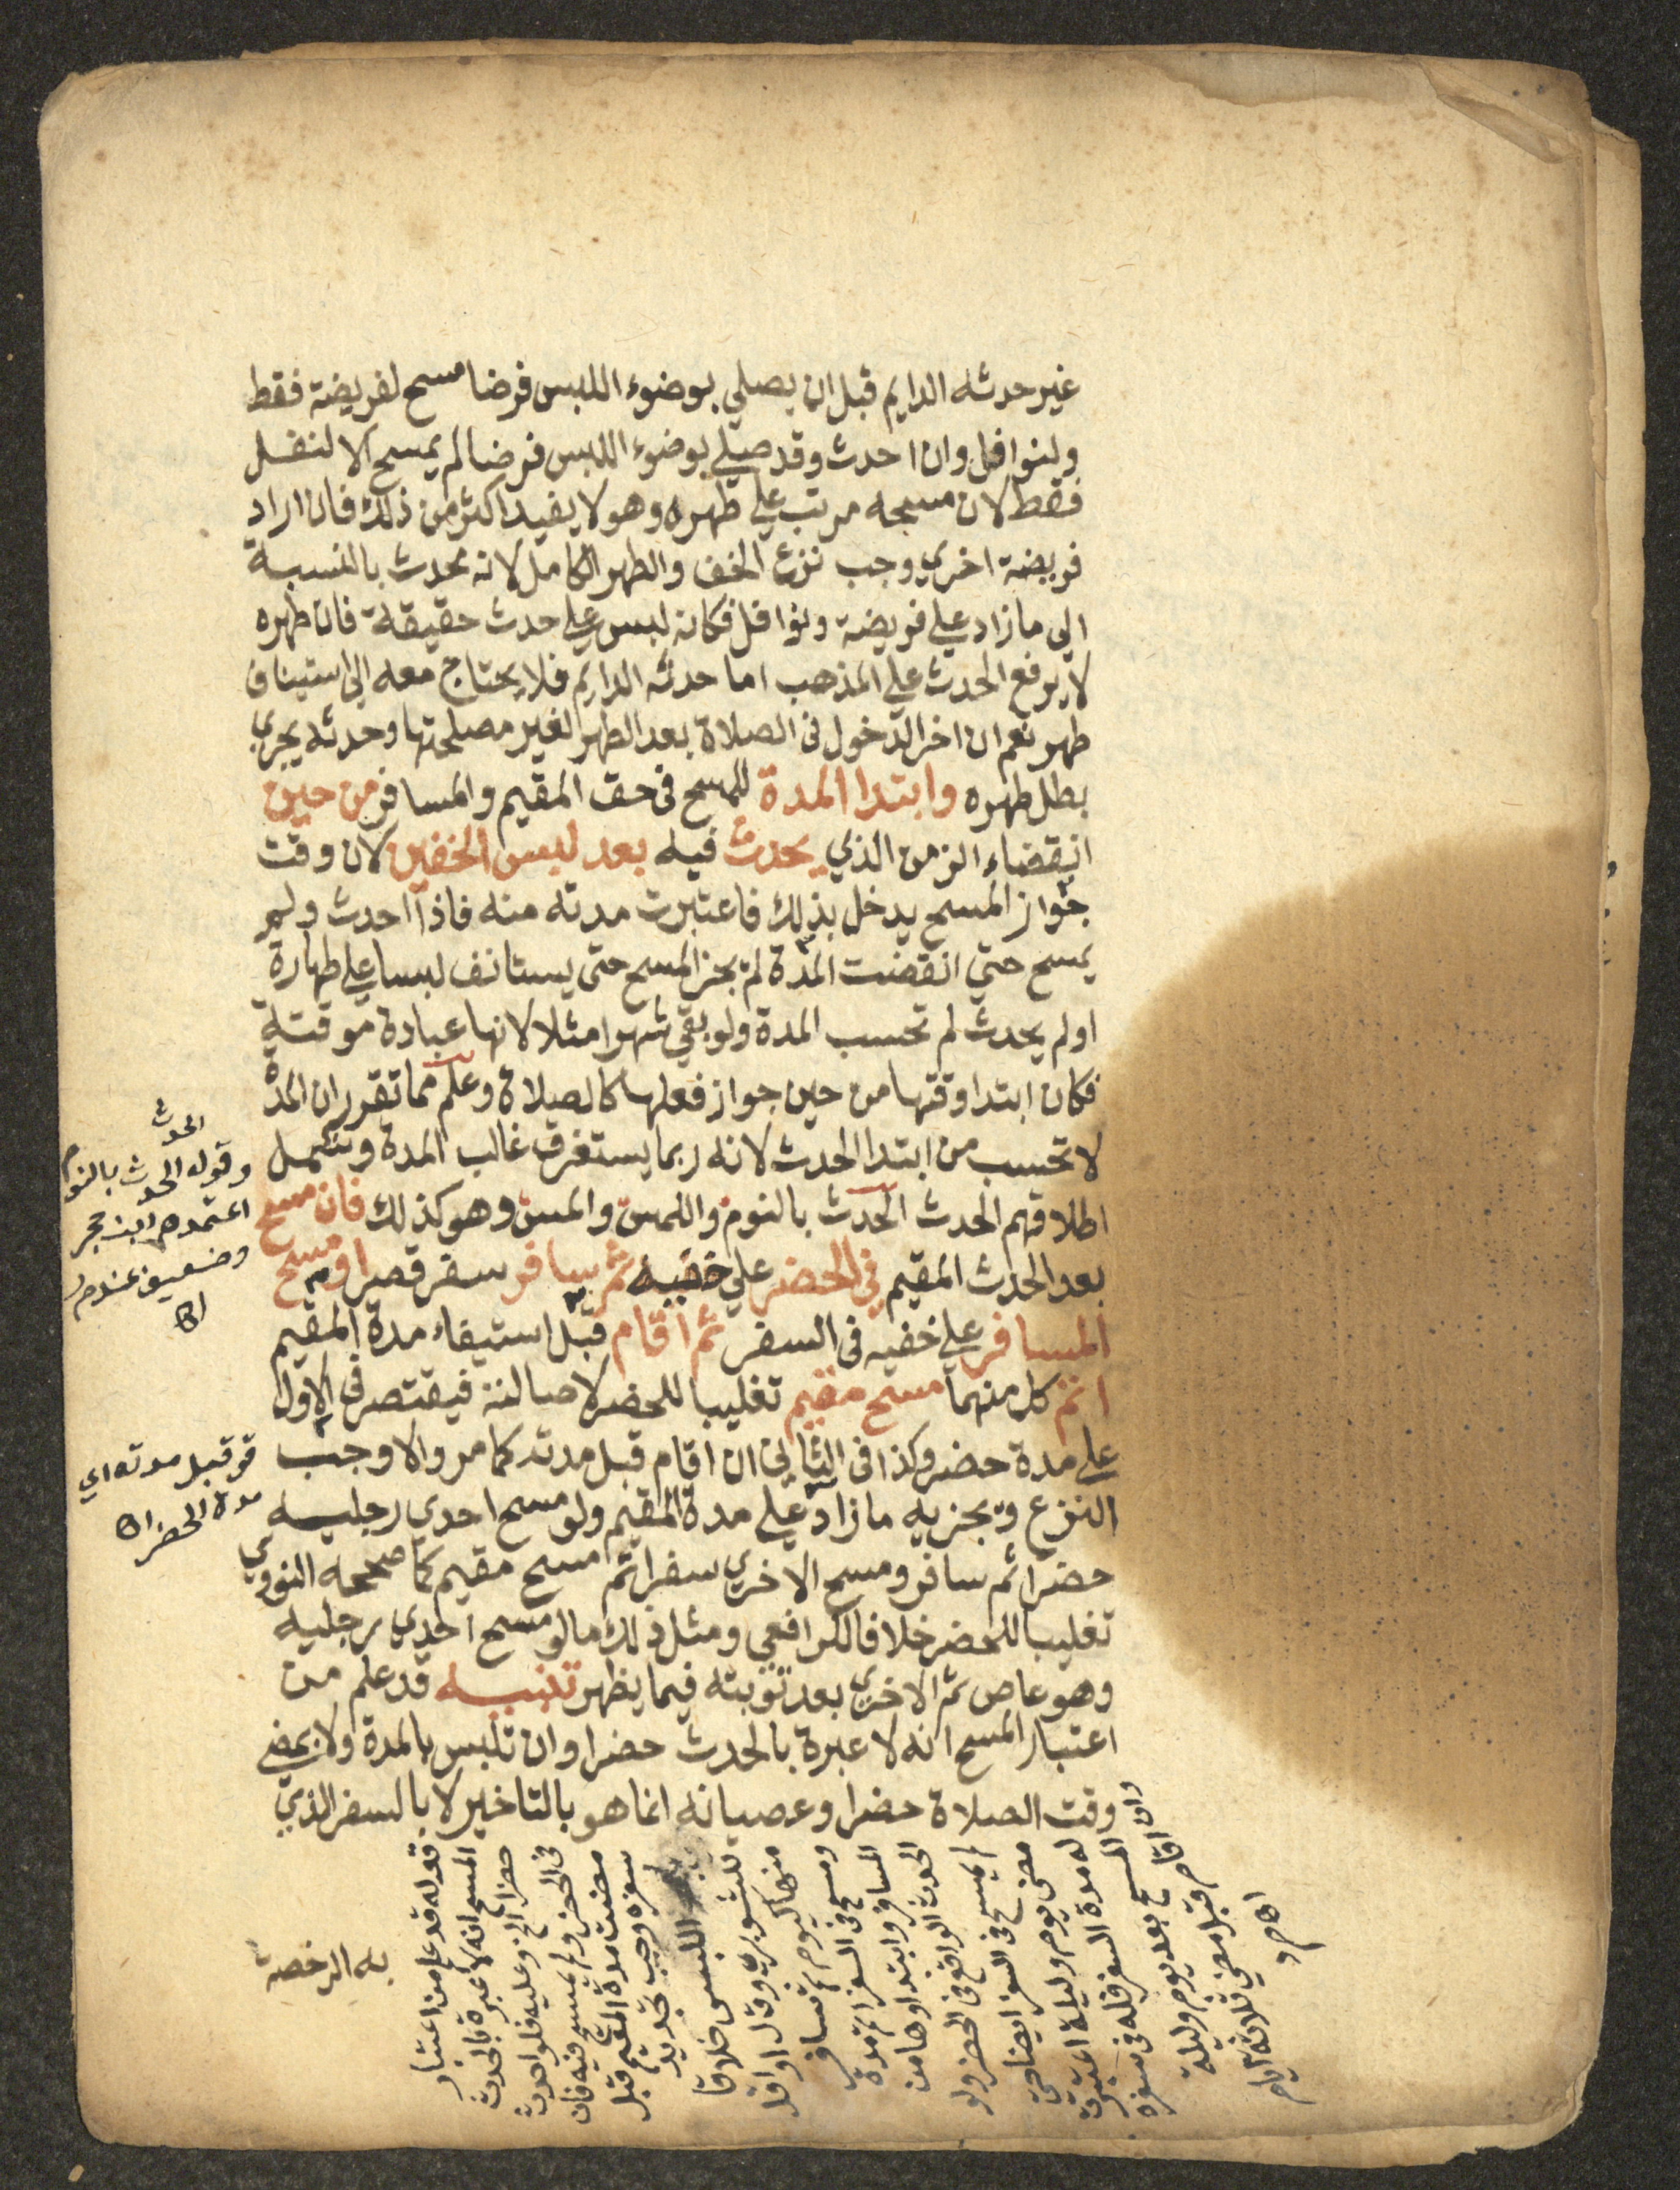 غير حدثه الدايم قبل ان يصلي بوضوء اللبس فرضا مسح لفريضة فقط
ولنوافل وان احدث وقد صلي بوضوء اللبس فرضا لم يمسح الا لنفل
فقط لان مسحه مرتب علي طهره وهو لا يفيد اكثر من ذلك فان اراد
فريضة اخري وجب نزع الخف والطهر الكامل لانه محدث بالنسبة
الي ما زاد علي فريضة ونوافل فكانه لبس علي حدث حقيقة فان طهره
لا يرفع الحدث علي المذهب اما حدثه الدايم فلا يحتاج معه الي استيناف
طهر نعم ان اخر الدخول في الصلاة بعد الطهر لغير مصلحتها وحدثه يجري
بطل طهره وابتدا المدة للمسح في حق المقيم والمسافر من حين
انقضاء الزمن الذي يحدث فيه بعد لبس الخفين لان وقت
جواز المسح يدخل بذلك فاعتبرت مدته منه فاذا احدث ولم
يمسح حتي انقضت المدة لم يجز المسح حتي يستانف لبسا علي طهارة
او لم يحدث لم تحسب المدة ولو بقي شهرا مثلا لانها عبادة موقتة
فكان ابتدا وقتها من حين جواز فعلها كالصلاة وعلم مما تقرر ان المدة
لا تحسب من ابتدا الحدث لانه ربما يستغرق غالب المدة وشمل
اطلاقهم الحدث الحدث بالنوم واللمس والمس وهو كذلك فان مسح
بعد الحدث المقيم في الحضر علي خفيه ثم سافر سفر قصر او مسح
المسافر علي خفيه في السفر ثم اقام قبل استيفاء مدة المقيم
اتم كل منهما مسح مقيم تغليبا للحضر لاصالته فيقتصر في الاول
علي مدة حضر وكذا في الثاني ان اقام قبل مدته كما مر والا وجب
النزع ويجزيه ما زاد علي مدة المقيم ولو مسح احدي رجليه
حضرا ثم سافر ومسح الاخري سفرا اتم مسح مقيم كما صححه النووي
تغليبا للحضر خلافا للرافعي ومثل ذلك ما لو مسح احدي رجليه
وهو عاص ثم الاخري بعد توبته فيما يظهر تنبيه قد علم من
اعتبار المسح انه لا عبرة بالحدث حضرا وان تلبس بالمدة ولا بمضي
وقت الصلاة حضرا وعصيانه انما هو بالتاخير لا بالسفر الذي
به الرخصة
الحدث
وقوله الحدث بالنوم
اعتمده ابن حجر
وضعيف عند م ر
اه
قو قبل مدته اي
مدة الحضر اه
قوله قد علم من اعتبار
المسح انه لا عبرة بالحدث
حضرا الخ وعليه فلو احدث
في الحضر ولم يمسح فيه فان
مضت مدة المقيم قبل
سفره وجب تجديد
اللبس خلافا
للشوبري وقال او اقل
منها كيوم ثم سافر
ومسح في السفر اتم مدة
المسافر وابتداوها من
الحدث الواقع في الحضر ولو
لم يمسح في السفر ايضا حتي
مضي يوم وليلة اعتبرت
له مدة السفر فله في سفره
المسح بعد يوم وليلة
وان اقام قبل مضي ثلاثة ايام
اه م د